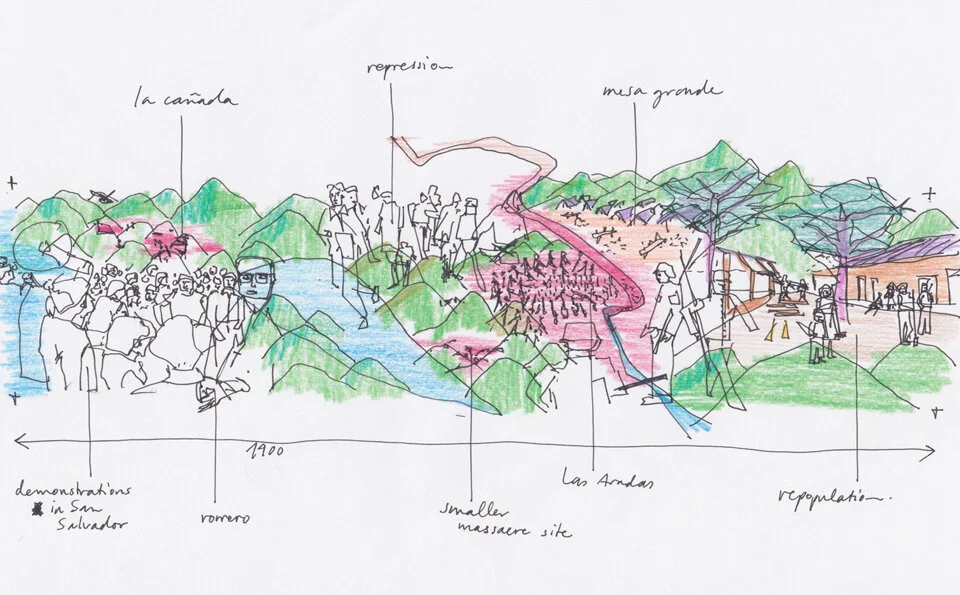 repression
la cañada
mesa grande
1900
demonstrations
in San
Salvador
romero
smaller
massacre site
Las Aradas
repopulation.